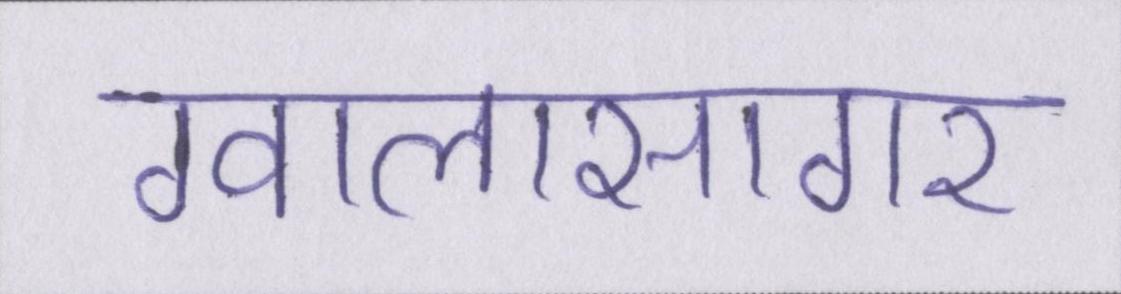 ग्वालासागर